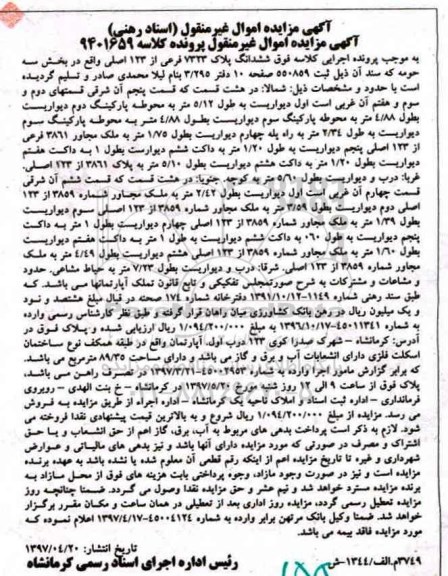 آگهی مزایده اموال غیرمنقول (اسناد رهنی)
آگهی مزایده اموال غیرمنقول پرونده کلاسه ۹۴۰۱۶۵۹
به موجب پرونده اجرایی کلاسه فوق ششدانگ پلاک ۷۳۳۳ فرعی از ۱۲۳ اصلی واقع در بخش سه
حومه که سند آن ذیل ثبت ۵۵۰۸۵۹ صفحه ۱۰ دفتر ۳/۲۹۵ بنام لیلا محمدی صادر و تسلیم گردیده
است با حدود و مشخصات ذیل: شمالا: در هشت قسمت که قسمت پنجم آن شرقی قسمتهای دوم و
سوم و هفتم آن غربی است اول دیواریست به طول ۵/۱۲ متر به محوطه پارکینگ دوم دیواریست
بطول ۴/۸۸ متر به محوطه پارکینگ سوم دیواریست بطول ۴/۸۸ متر به محوطه پارکینگ سوم
دیواریست به طول ۲/۳۴ متر به راه پله چهارم دیواریست بطول ۱/۷۵ متر به ملک مجاور ۳۸۶۱ فرعی
از ۱۲۳ اصلی پنجم دیواریست به طول ۱/۲۰ متر به داکت ششم دیواریست بطول ۱ به داکت هفتم
دیواریست بطول ۱/۲۰ متر به داکت هشتم دیواریست بطول ۵/۱۰ متر به پلاک ۳۸۶۱ از ۱۲۳ اصلی.
غربا: درب و دیواریست بطول ۵/۶۱۰ متر به کوچه. جنوبا: در هشت قسمت که قسمت ششم آن شرقی
قسمت چهارم آن غربی است اول دیواریست بطول ۲/۴۲ متر به ملک مجاور شماره ۳۸۵۹ از ۱۲۳
اصلی دوم دیواریست بطول ۳/۵۹ متر به ملک مجاور شماره ۳۸۵۹ از ۱۲۳ اصلی سوم دیواریست
بطول ۱/۳۹ متر به ملک مجاور شماره ۳۸۵۹ از ۱۲۳ اصلی چهارم دیواریست بطول ۱ متر به داکت
پنجم دیواریست به طول ۰۶۰ به داکت ششم دیواریست به طول ۱ متر به داکت هفتم دیواریست
بطول ۱/۶۰ متر به ملک مجاور شماره ۳۸۵۹ از ۱۲۳ اصلی هشتم دیواریست بطول ۴/۴۹ متر به ملک
مجاور شماره ۳۸۵۹ از ۱۲۳ اصلی. شرقا: درب و دیواریست بطول ۷/۲۳ متر به حیاط مشاعی. حدود
و مشاعات و مشترکات به شرح صورتمجلس تفکیکی و تابع قانون تملک آپارتمانها می باشد. که
طبق سند رهنی شماره ۱۱۴۹-۱۳۹۱/۱۰/۱۲ دفترخانه شماره ۱۷۴ صحنه در قبال مبلغ هشتصد و نود
و یک میلیون ریال در رهن بانک کشاورزی میان راهان قرار گرفته و طبق نظر کارشناس رسمی وارده
به شماره ۴۵۰۱۱۳۴۱-۱۳۹۶/۱۰/۱۷ به مبلغ ۱/۰۹۴/۲۰۰/۰۰۰ ریال ارزیابی شده و پلاک فوق در
آدرس: کرمانشاه - شهرک صدرا کوی ۱۲۳ درب اول، آپارتمان واقع در طبقه همکف نوع ساختمان
اسکلت فلزی دارای انشعابات آب و برق و گاز می باشد و دارای مساحت ۸۹/۳۵ مترمربع می باشد
که برابر گزارش مامور اجرا وارده به شماره ۴۵۰۰۲۹۵۳-۱۳۹۷/۳/۲۱ در تصرف راهن می باشد.
پلاک فوق از ساعت ۹ الی ۱۲ روز شنبه مورخ ۱۳۹۷/۵/۲۰ در کرمانشاه - خ بنت الهدی - روبروی
فرمانداری - اداره ثبت اسناد و املاک ناحیه یک کرمانشاه - اداره اجرا از طریق مزایده به فروش
می رسد. مزایده از مبلغ ۱/۰۹۴/۲۰۰/۰۰۰ ریال شروع و به بالاترین قیمت پیشنهادی نقدا فروخته می
شود. لازم به ذکر است پرداخت بدهی های مربوط به آب، برق، گاز اعم از حق انشعاب و یا حق
اشتراک و مصرف در صورتی که مورد مزایده دارای آنها باشد و نیز بدهی های مالیاتی و عوارض
شهرداری و غیره تا تاریخ مزایده اعم از اینکه رقم قطعی آن معلوم شده یا نشده باشد به عهده برنده
مزایده است و نیز در صورت وجود مازاد، وجوه پرداختی بابت هزینه های فوق از محل مازاد به
برنده مزایده مسترد خواهد شد و نیم عشر و حق مزایده نقدا وصول می گردد. ضمنا چنانچه روز
مزایده تعطیل رسمی گردد، مزایده روز اداری بعد از تعطیلی در همان ساعت و مکان مقرر برگزار
خواهد شد. ضمنا وکیل بانک مرتهن برابر وارده به شماره ۴۵۰۰۴۱۲۴-۱۳۹۷/۴/۱۷ اعلام نموده که
مورد مزایده فاقد بیمه می باشد.
تاریخ انتشار: ۱۳۹۷/۰۴/۲۰
۳۷۴۹م.الف/۱۳۴۴-ش رئیس اداره اجرای اسناد رسمی کرمانشاه